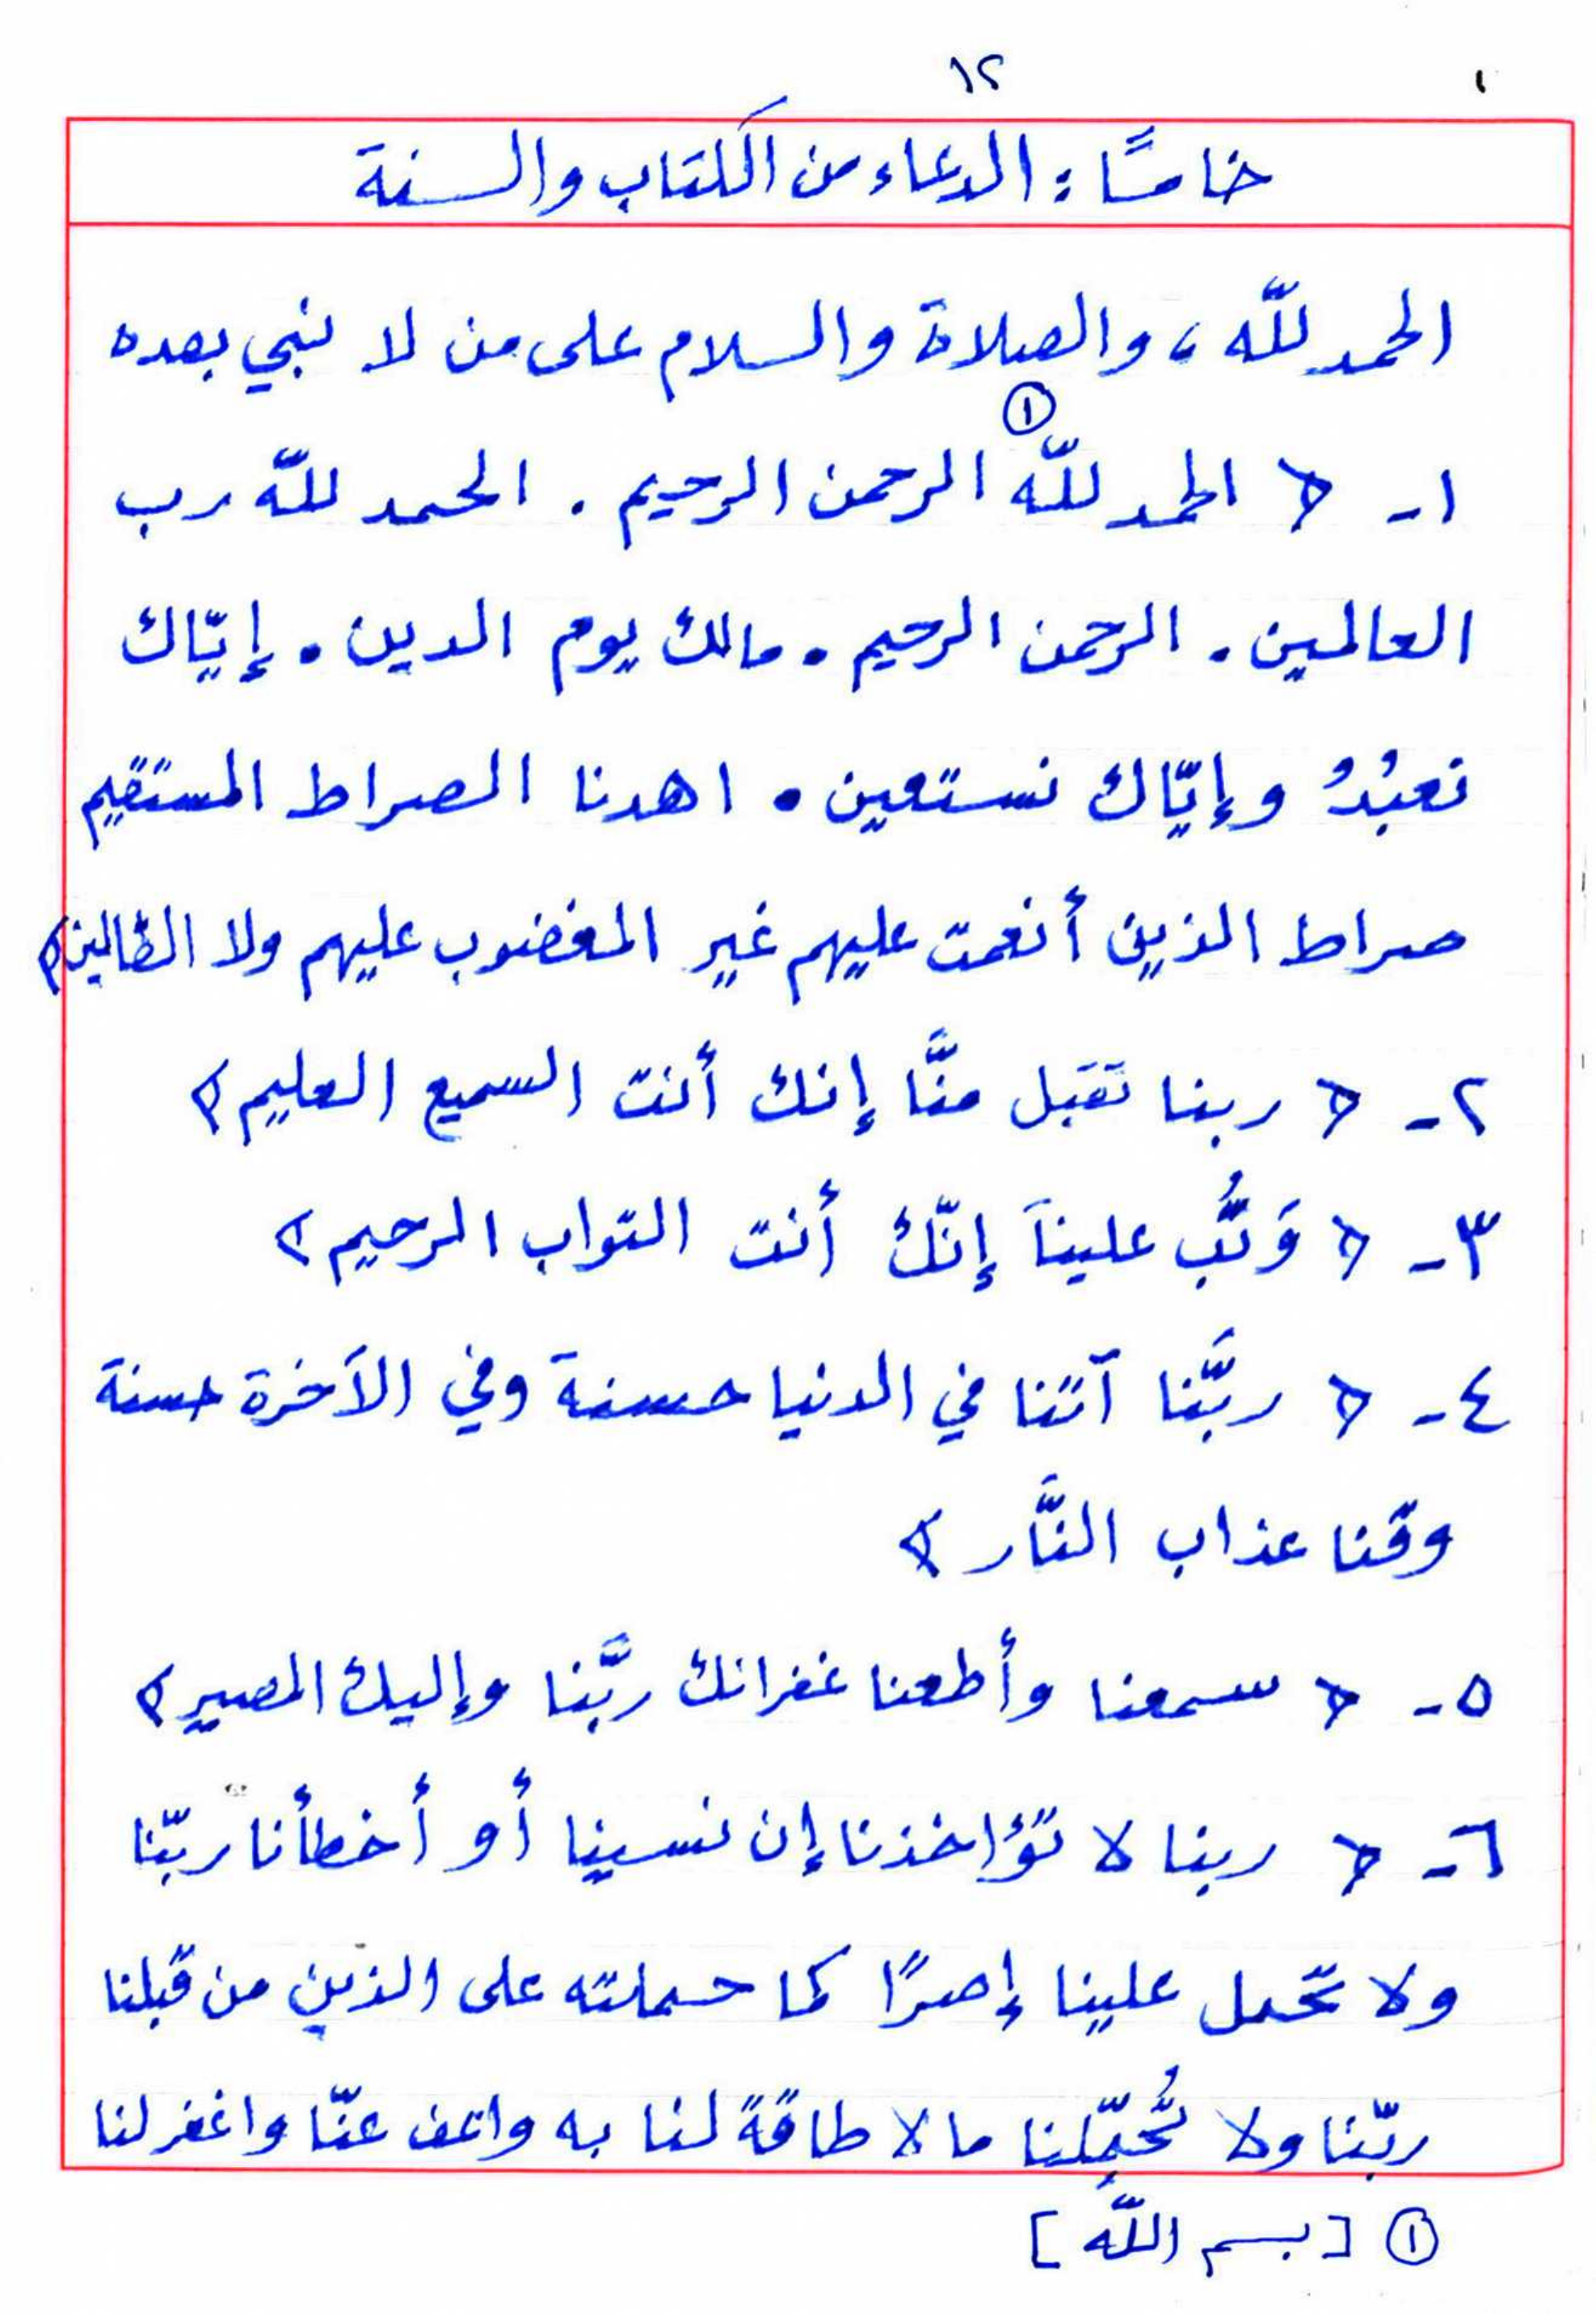 ١٢
خامسًا: الدعاء من الكتاب والسنة
الحمد للّه، والصلاة والسلام على من لا نبي بعده
١ـ ﴿ الحمد للّه ① الرحمن الرحيم . الحمد للّه رب
العالمين . الرحمن الرحيم . مالك يوم الدين . إيّاك
نعبُدُ وإيّاك نستعين . اهدنا الصراط المستقيم
صراط الذين أنعمت عليهم غير المغضوب عليهم ولا الضّالين﴾
٢ـ ﴿ ربنا تقبل منَّا إنك أنت السميع العليم ﴾
٣ـ ﴿ وَتُب علينَا إنّك أنت التواب الرحيم ﴾
٤ـ ﴿ ربَّنا آتنا في الدنيا حسنة وفي الآخرة حسنة
وقنا عذاب النَّار ﴾
٥ـ ﴿ سمعنا وأطعنا غفرانك ربَّنا وإليك المصير ﴾
٦ـ ﴿ ربنا لا تؤاخذنا إن نسينا أو أخطأنا ربّنا
ولا تحمل علينا إصرًا كما حملته على الذين من قبلنا
ربّنا ولا تُحمِّلنا ما لا طاقةً لنا به واعف عنّا واغفر لنا
① [بسم اللّه]